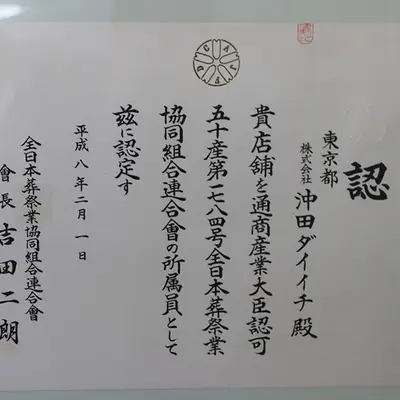 認
東京都
株式会社 沖田ダイイチ 殿
貴店舗を通商産業大臣認可
五十産第一七八四号全日本葬祭業
協同組合連合會の所属員として
玆に認定す
平成八年二月一日
全日本葬祭業協同組合連合會
會長 吉田二朗